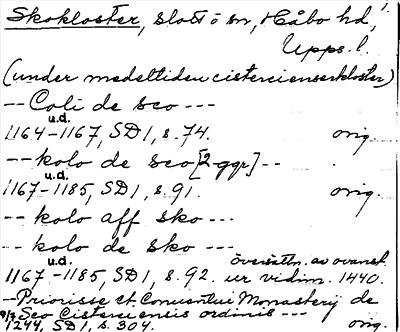 Skokloster, slott o sn, Håbo hd,
Upps. l.
(under medeltiden cistercienserkloster)
-- Coli de sco ---
u.d.
1164-1167, SD 1, s. 74. orig.
-- kolo de sco [2 ggr] --
u.d.
1167-1185, SD 1, s. 91. orig.
-- kolo aff sko ---
-- kolo de sko ---
u.d. översättn. av ovanst.
1167-1185, SD 1, s. 92. ur vidim. 1440.
-- Priorisse et Conuentui Monasterij de
Sco Cisterciensis ordinis ---
1244, SD 1, s. 304. orig.